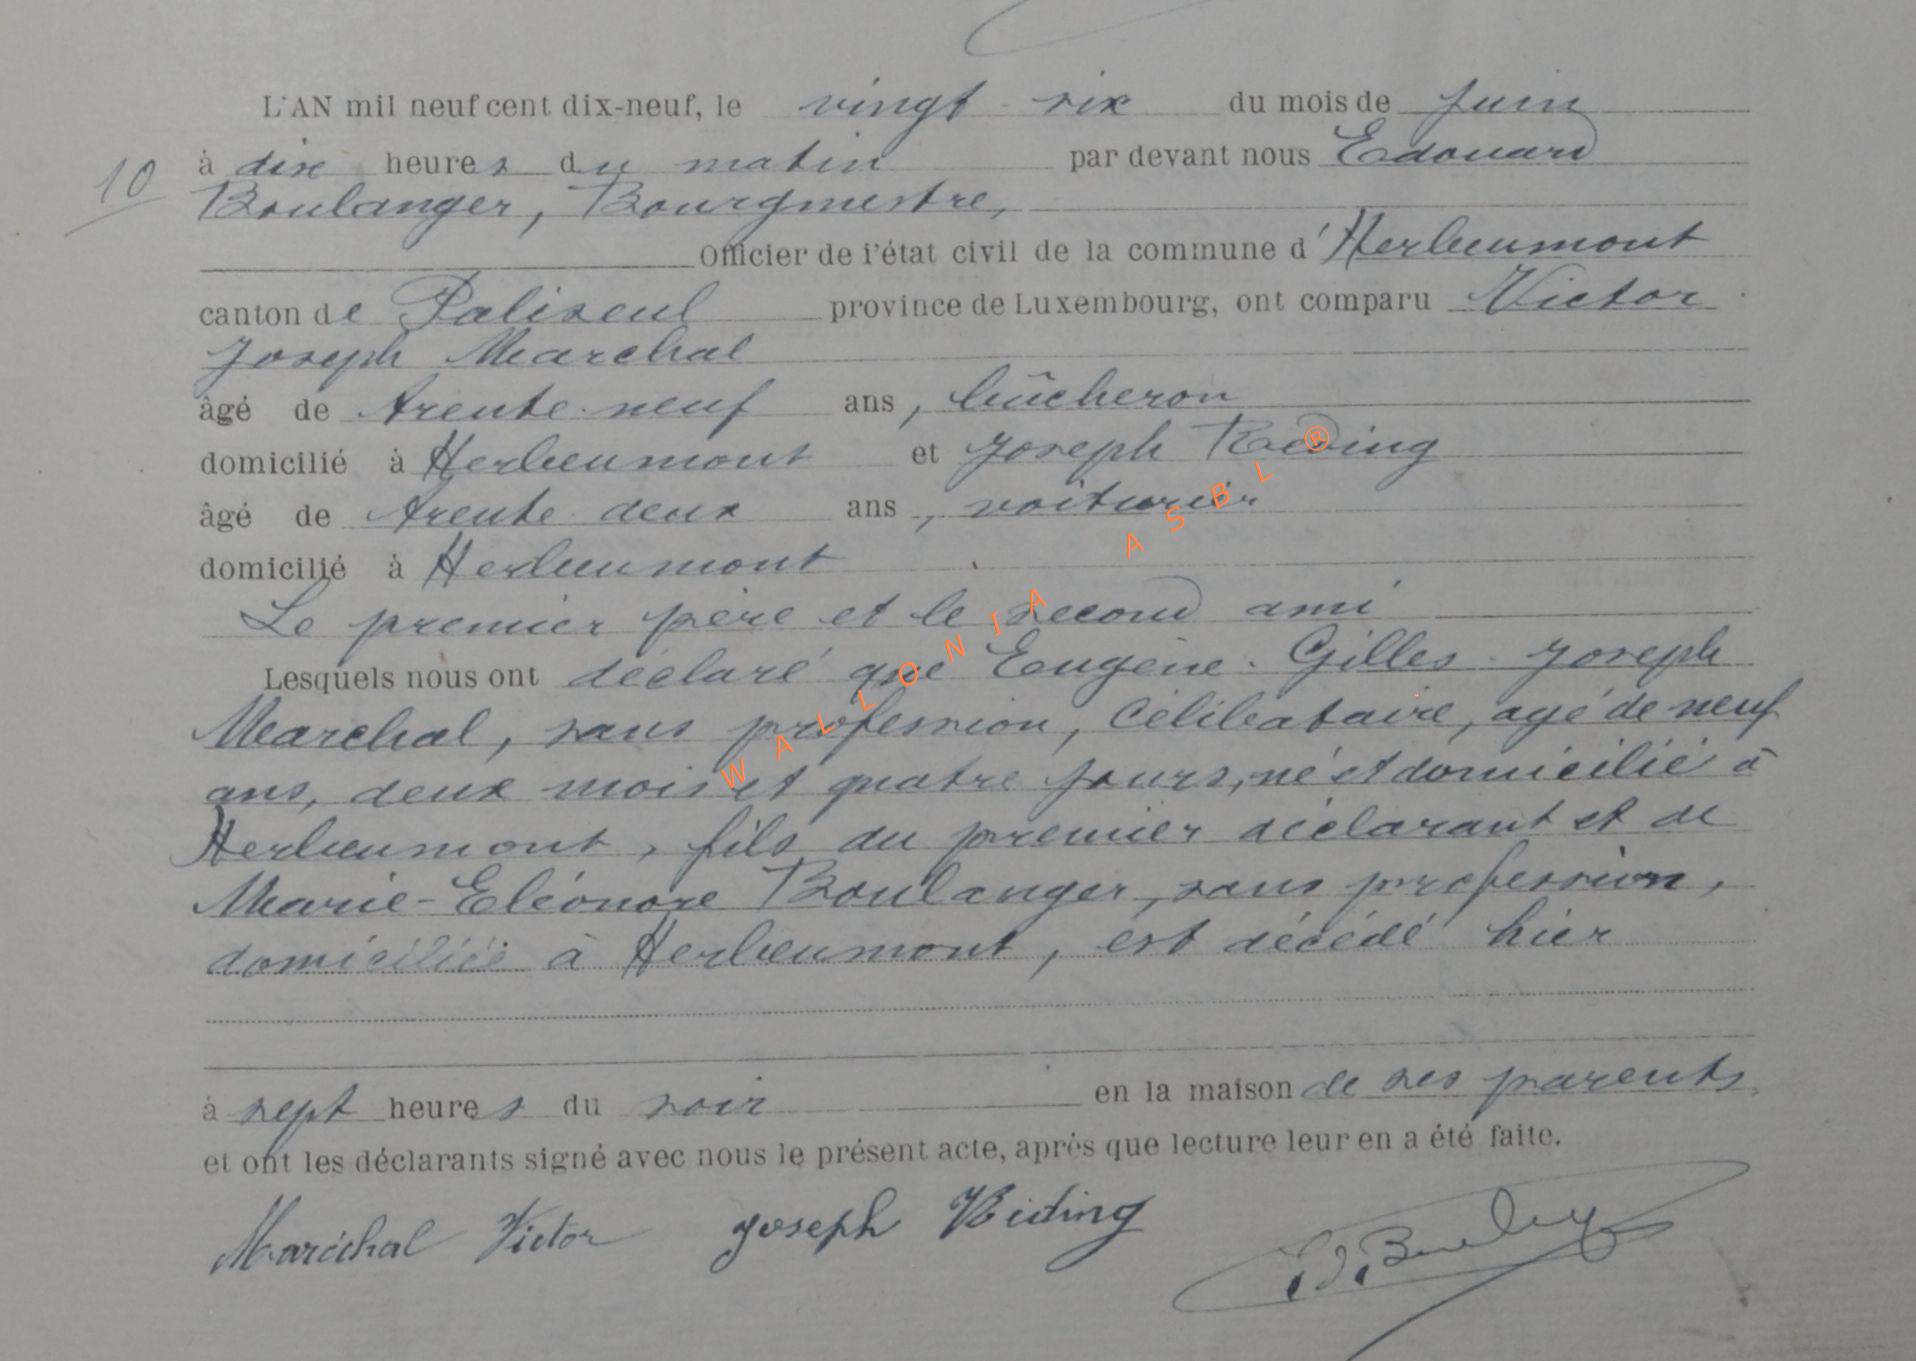 L'AN mil neuf cent dix-neuf, le vingt-six du mois de juin
10
à dix heures du matin par devant nous Edouard
Boulanger, Bourgmestre,
Officier de l'état civil de la commune d'Herbeumont
canton de Paliseul province de Luxembourg, ont comparu Victor
Joseph Marchal
âgé de trente-neuf ans, bûcheron
domicilié à Herbeumont et Joseph Réding
âgé de trente-deux ans, voiturier
domicilié à Herbeumont
Le premier père et le second ami
Lesquels nous ont déclaré que Eugène-Gilles-Joseph
Marchal, sans profession, célibataire, agé de neuf
ans, deux mois et quatre jours, né et domicilié à
Herbeumont, fils du premier déclarant et de
Marie-Eléonore Boulanger, sans profession,
domiciliée à Herbeumont, est décédé hier
à sept heures du soir en la maison de ses parents,
et ont les déclarants signé avec nous le présent acte, après que lecture leur en a été faite.
Maréchal Victor Joseph Réding
WALLONIA ASBL ®